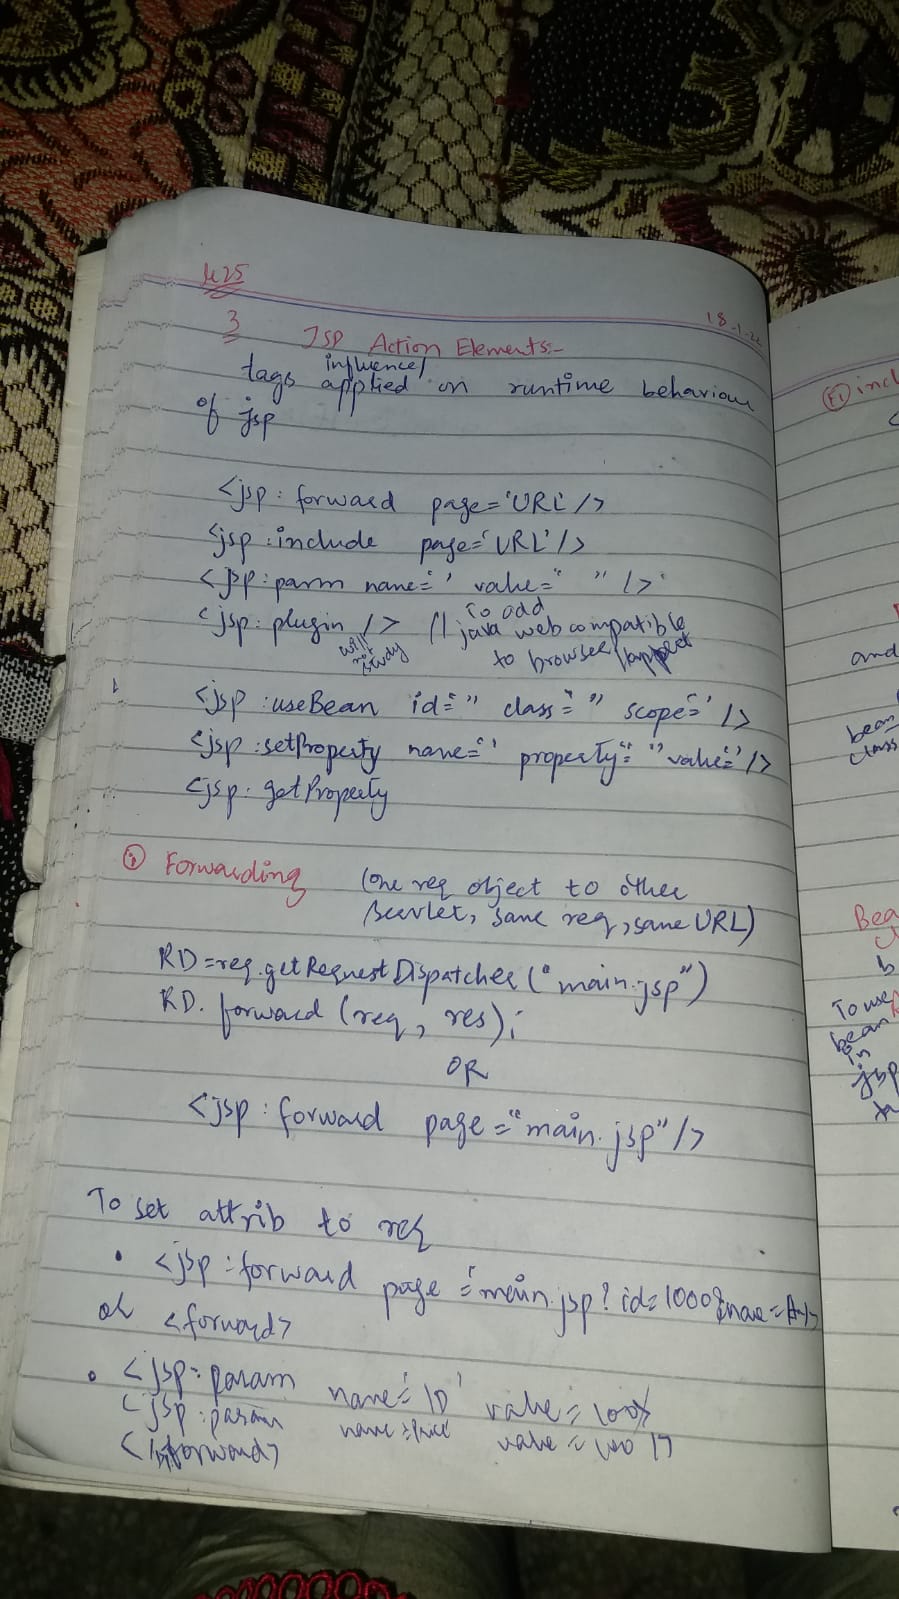 L25
18-1-22
3 JSP Action Elements:-
influence/
tags applied on runtime behaviour
of jsp
<jsp: forward page='URL'/>
<jsp:include page='URL'/>
<jsp:parm name=' value=" " />
<jsp: plugin /> // To add
java web compatible
to browser/
will not study
<jsp:useBean id=" " class=" " scope=' />
<jsp:setProperty name=' ' property=" " value=' '/>
<jsp: getProperty
① Forwarding (one req object to other
servlet, same req, same URL)
RD=req.getRequestDispatcher("main.jsp")
RD. forward (req, res);
OR
<jsp: forward page="main.jsp"/>
To set attrib to req
• <jsp:forward page='main.jsp? id=1000&
or <forward>
• <jsp: param name='ID' value=
<jsp:param name= value=
forward>
① incl
and
bean
class
Bea
b
To use
bean
in
jsp